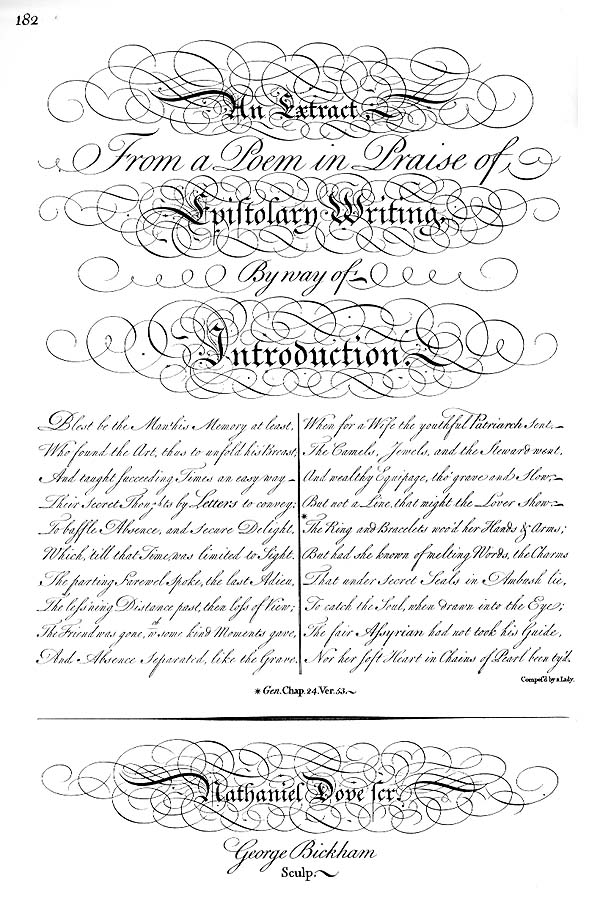 182
An Extract,
From a Poem in Praise of
Epistolary Writing,
By way of
Introduction.
Blest be the Man! his Memory at least,
Who found the Art, thus to unfold his Breast,
And taught succeeding Times an easy way
Their Secret Thoughts by Letters to convey;
To baffle Absence, and secure Delight,
Which, 'till that Time, was limited to Sight.
The parting Farewel spoke, the last Adieu,
The less'ning Distance past, then loss of View;
The Friend was gone, wch some kind Moments gave,
And Absence separated, like the Grave.
When for a Wife the youthful Patriarch sent,
The Camels, Jewels, and the Steward went,
And wealthy Equipage, tho' grave and slow;
But not a Line, that might the Lover show.
*The Ring and Bracelets woo'd her Hands & Arms;
But had she known of melting Words, the Charms
That under secret Seals in Ambush lie,
To catch the Soul, when drawn into the Eye;
The fair Assyrian had not took his Guide,
Nor her soft Heart in Chains of Pearl been ty'd.
Compos'd by a Lady.
* Gen. Chap. 24. Ver. 53.
Nathaniel Dove scr.
George Bickham
Sculp.